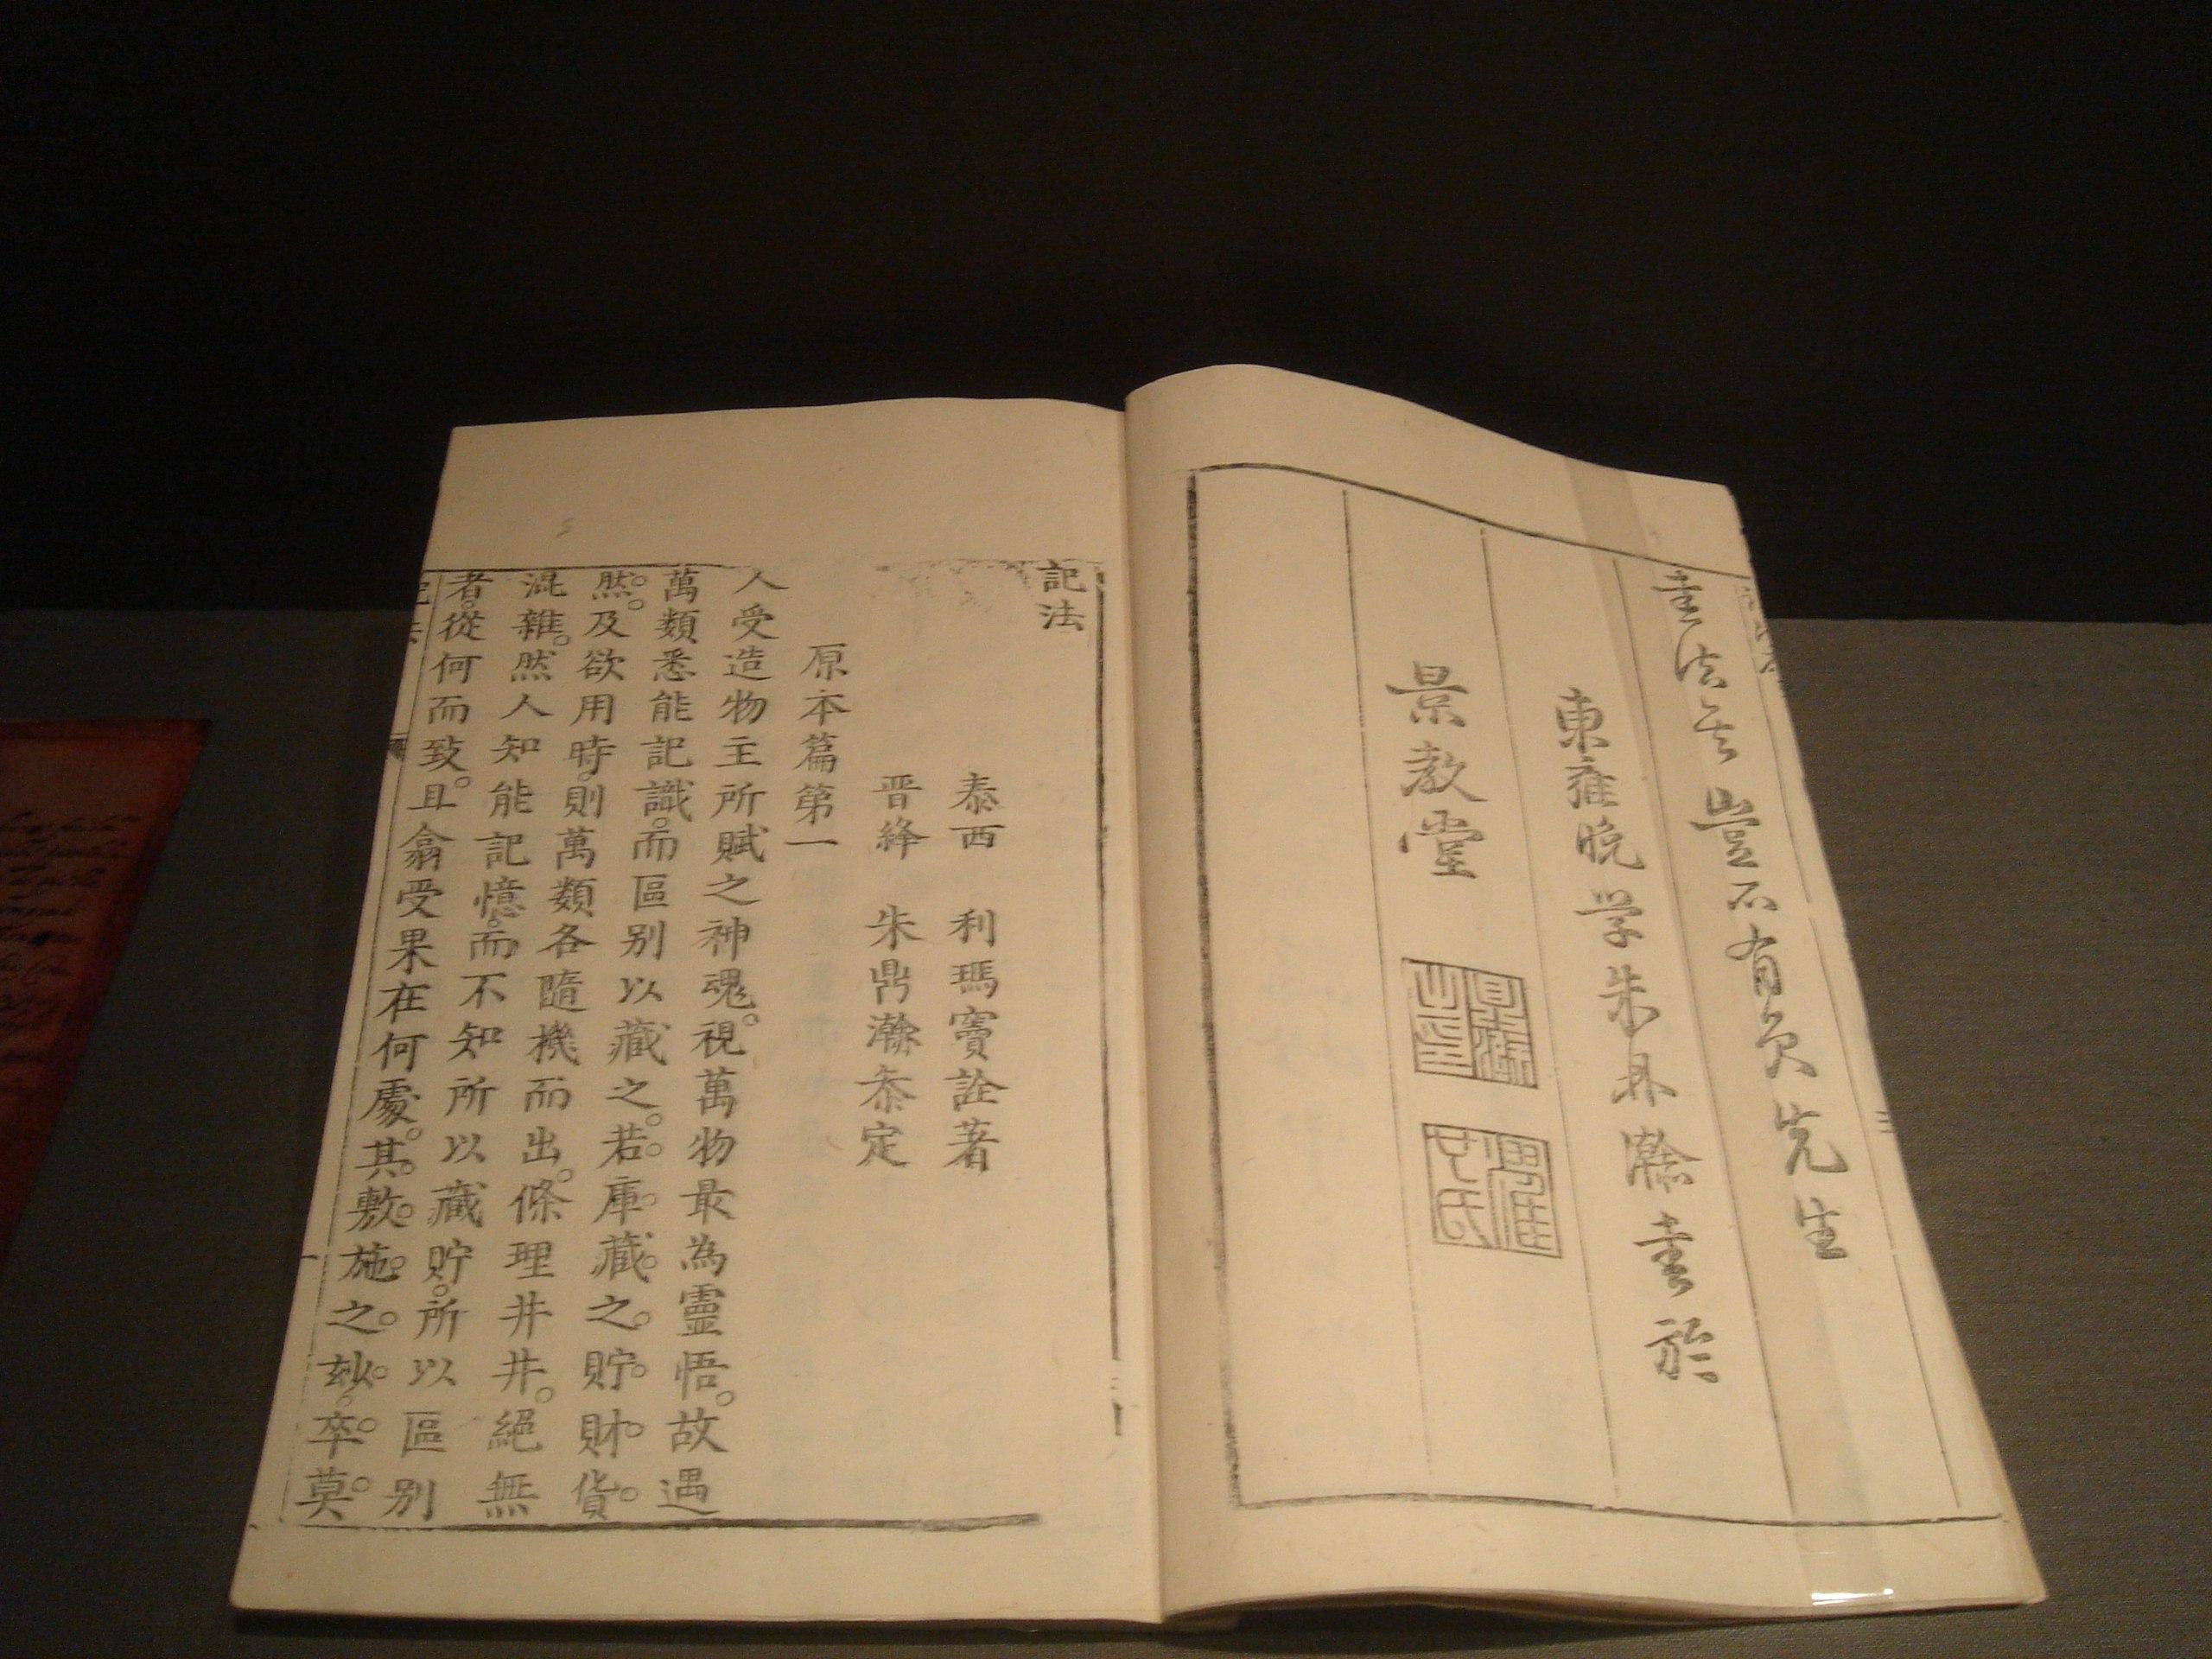 書法云豈不有負先生
東雍晚学朱鼎瀚書於
景教堂
記法
泰西 利瑪竇詮著
晋絳 朱鼎瀚叅定
原本篇第一
人受造物主所賦之神魂。視萬物最為靈悟。故遇
萬類悉能記識。而區别以藏之。若庫藏之貯財貨
然。及欲用時。則萬類各隨機而出。條理井井。絕無
混雜。然人知能記憶。而不知所以藏貯。所以區别
者。從何而致。且翕受果在何處。其敷施之玅。卒莫